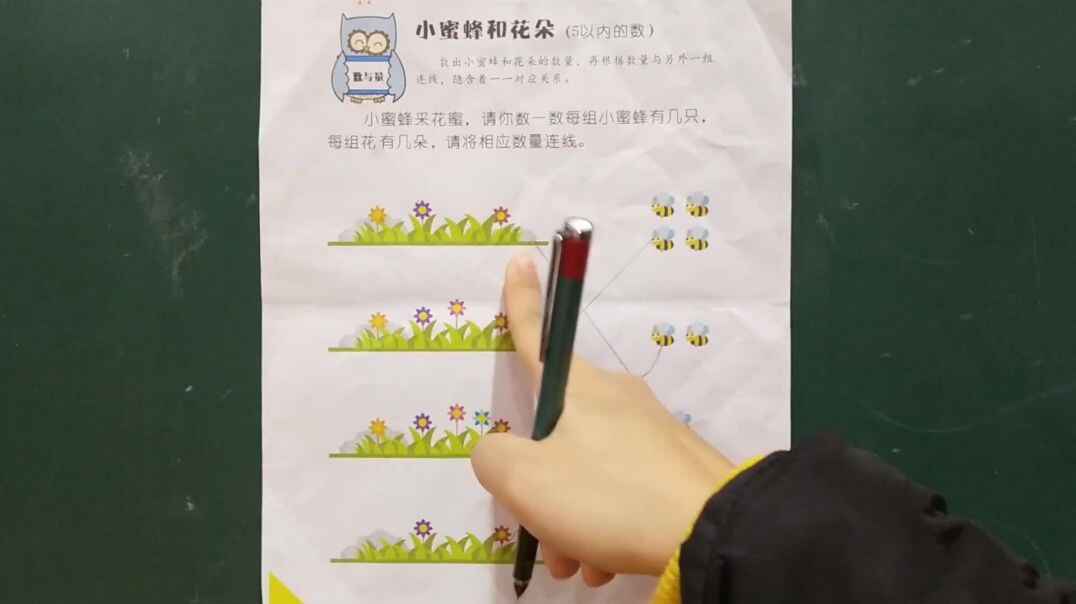 小蜜蜂和花朵（5以内的数）
数出小蜜蜂和花朵的数量，再根据数量与另外一组
连线，隐含着一一对应关系。
数与量
小蜜蜂采花蜜，请你数一数每组小蜜蜂有几只，
每组花有几朵，请将相应数量连线。